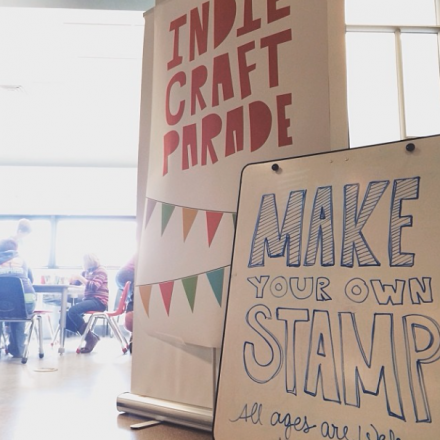 INDIE
CRAFT
PARADE
MAKE
YOUR OWN
STAMP
All ages are